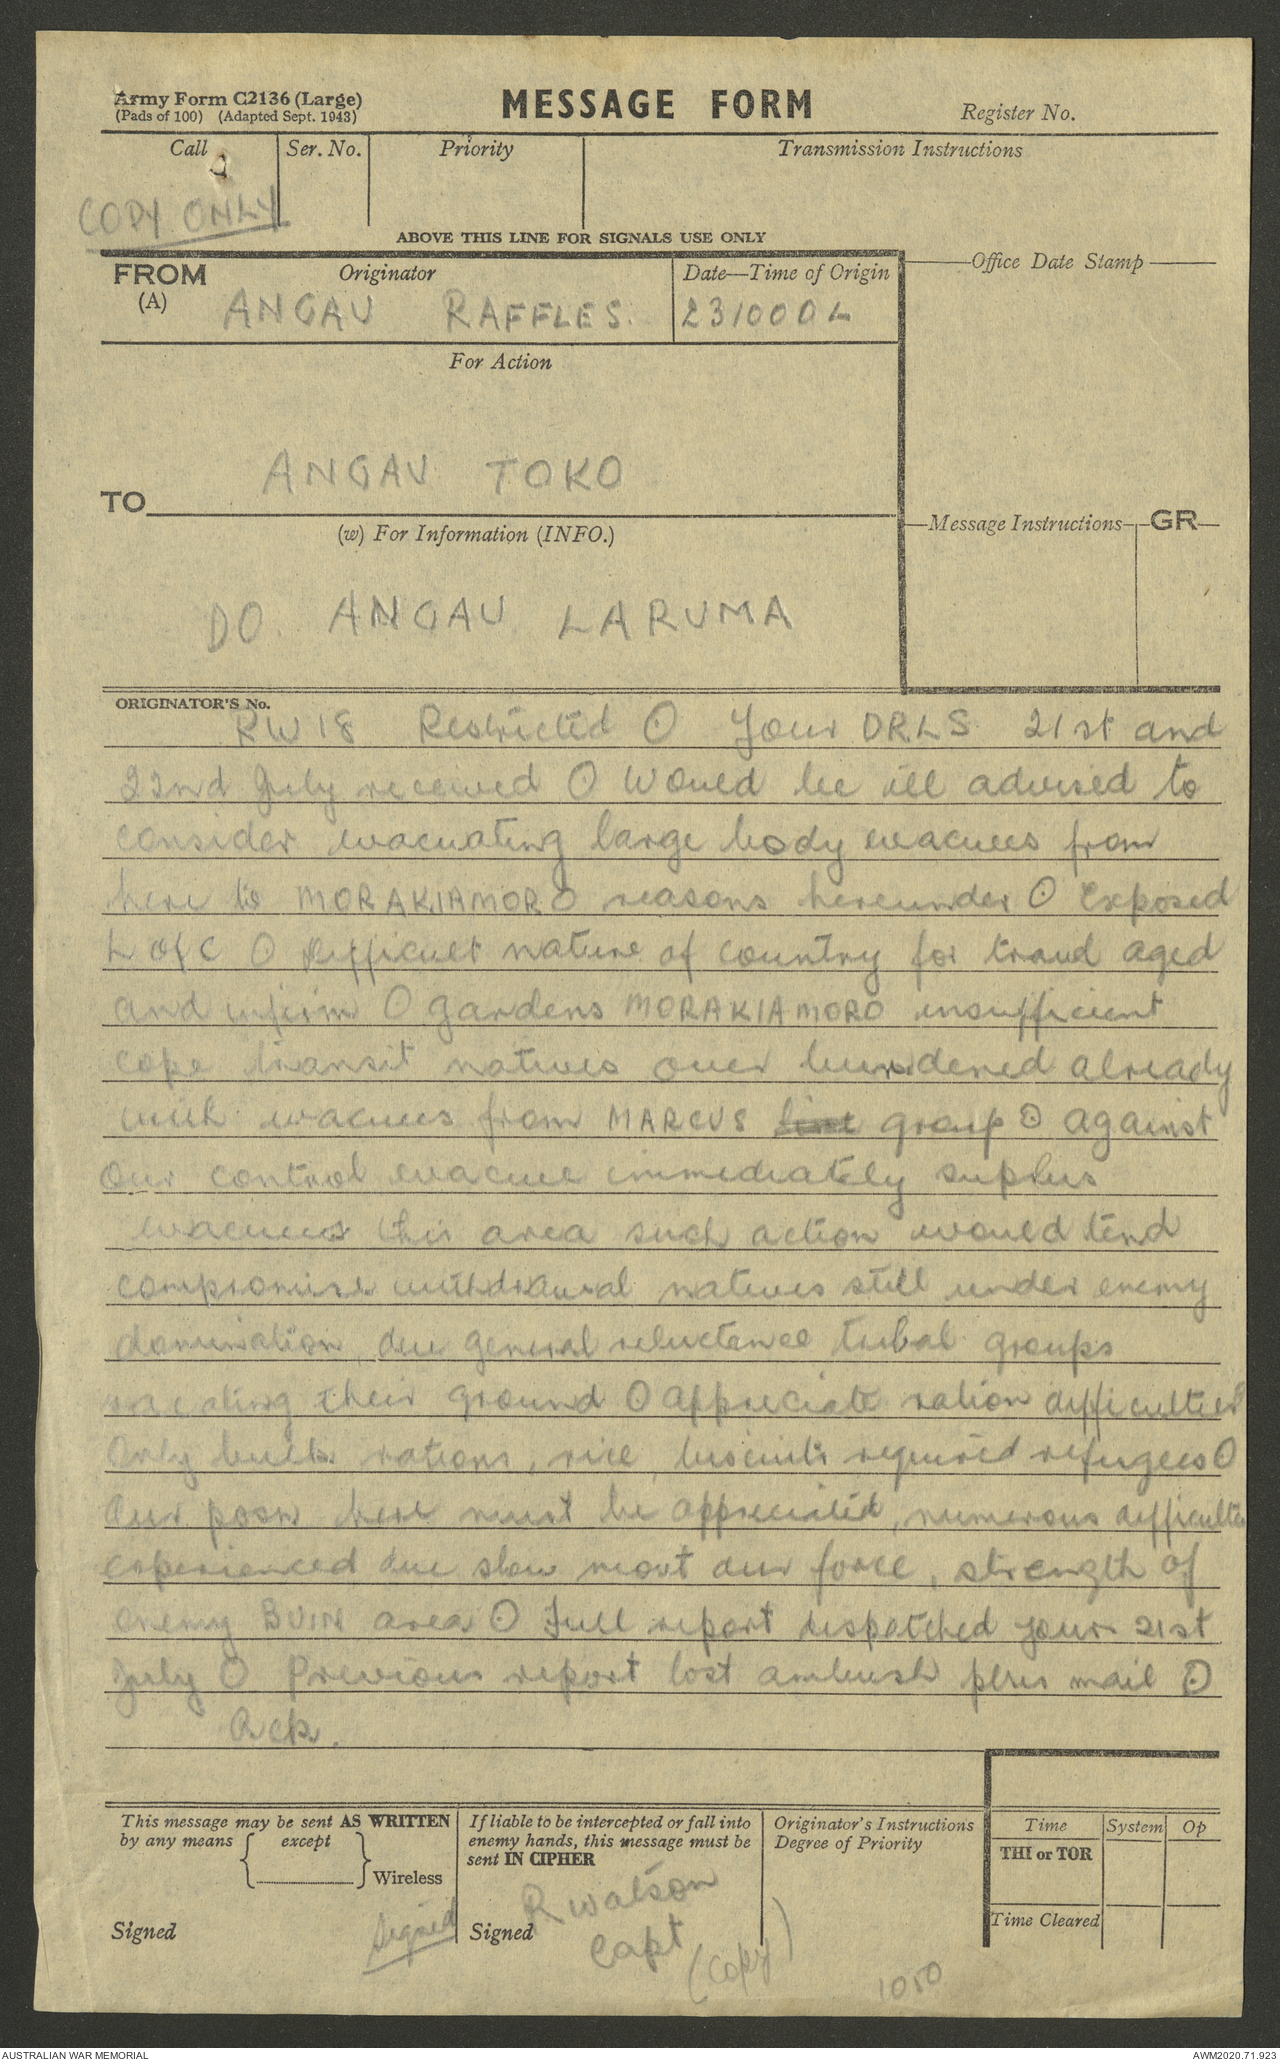 Army Form C2136 (Large)
(Pads of 100) (Adapted Sept. 1943)
MESSAGE FORM
Register No.
Call
Ser. No.
Priority
Transmission Instructions
COPY ONLY
ABOVE THIS LINE FOR SIGNALS USE ONLY
FROM
(A)
Originator
Date—Time of Origin
Office Date Stamp
ANGAU RAFFLES.
231000L
For Action
ANGAU TOKO
TO
(w) For Information (INFO.)
Message Instructions
GR
DO. ANGAU LARUMA
ORIGINATOR'S No.
RW18 Restricted O Your DRLS 21st and
22nd July received O Would be ill advised to
consider evacuating large body evacuees from
here to MORAKIAMORO reasons hereunder O Exposed
L of C O Difficult nature of country for travel aged
and infirm O Gardens MORAKIAMORO insufficient
cope transit natives over burdened already
with evacuees from MARCUS group O Against
our control evacuee immediately suplus
evacuees this area such action would tend
compromise withdrawal natives still under enemy
domination, due general reluctance tribal groups
vacating their ground O Appreciate ration difficulties O
Only bulk rations, rice, biscuits required refugees O
Our posn here must be appreciated, numerous difficulties
experienced due slow movt our force, strength of
enemy BUIN area O Full report despatched your 21st
July O Previous report lost ambush plus mail O
Ack.
This message may be sent AS WRITTEN
by any means { except }
Wireless
Signed
Signed
If liable to be intercepted or fall into
enemy hands, this message must be
sent IN CIPHER
Signed
R Watson
Capt
(Copy)
Originator's Instructions
Degree of Priority
Time
System
Op
THI or TOR
Time Cleared
1050
AUSTRALIAN WAR MEMORIAL
AWM2020.71.923